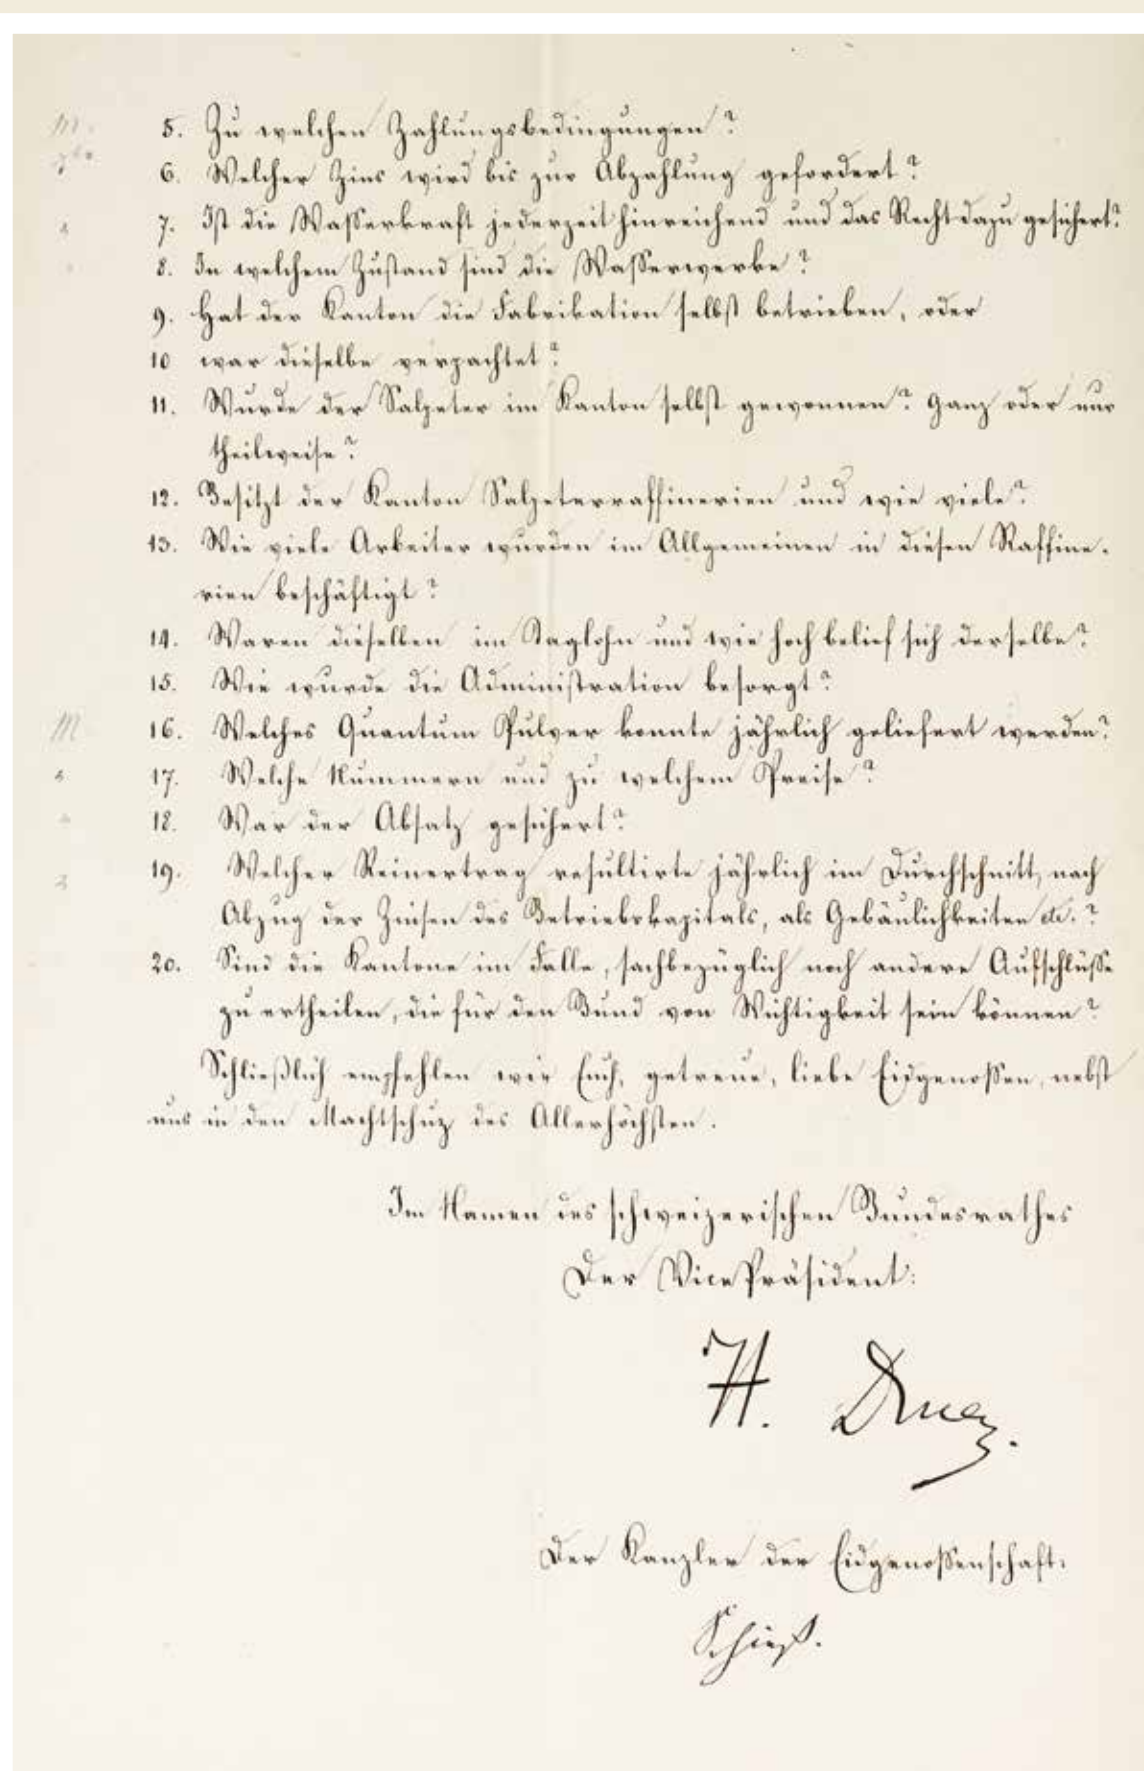 5. Zu welchen Zahlungsbedingungen?
6. Welcher Zins wird bis zur Abzahlung gefordert?
7. Ist die Wasserkraft jederzeit hinreichend und das Recht dazu gesichert?
8. In welchem Zustand sind die Wasserwerke?
9. Hat der Kanton die Fabrikation selbst betrieben, oder
10 war dieselbe verpachtet?
11. Wurde der Salpeter im Kanton selbst gewonnen? Ganz oder nur
theilweise?
12. Besitzt der Kanton Salpeterraffinerien und wie viele?
13. Wie viele Arbeiter wurden im Allgemeinen in diesen Raffine-
rien beschäftigt?
14. Waren dieselben im Taglohn und wie hoch belief sich derselbe?
15. Wie wurde die Administration besorgt?
16. Welches Quantum Pulver konnte jährlich geliefert werden?
17. Welche Nummern und zu welchem Preise?
18. War der Absatz gesichert?
19. Welcher Reinertrag resultirte jährlich im Durchschnitt, nach
Abzug der Zinsen des Betriebskapitals, als Gebäulichkeiten etc.?
20. Sind die Kantone im Falle, sachbezüglich noch andere Aufschlüsse
zu ertheilen, die für den Bund von Wichtigkeit sein können?
Schließlich empfehlen wir Euch, getreue, liebe Eidgenossen, nebst
uns in den Machtschuz des Allerhöchsten.
Im Namen des schweizerischen Bundesrathes
Der VicePräsident:
H. Druey.
Der Kanzler der Eidgenossenschaft:
Schieß.